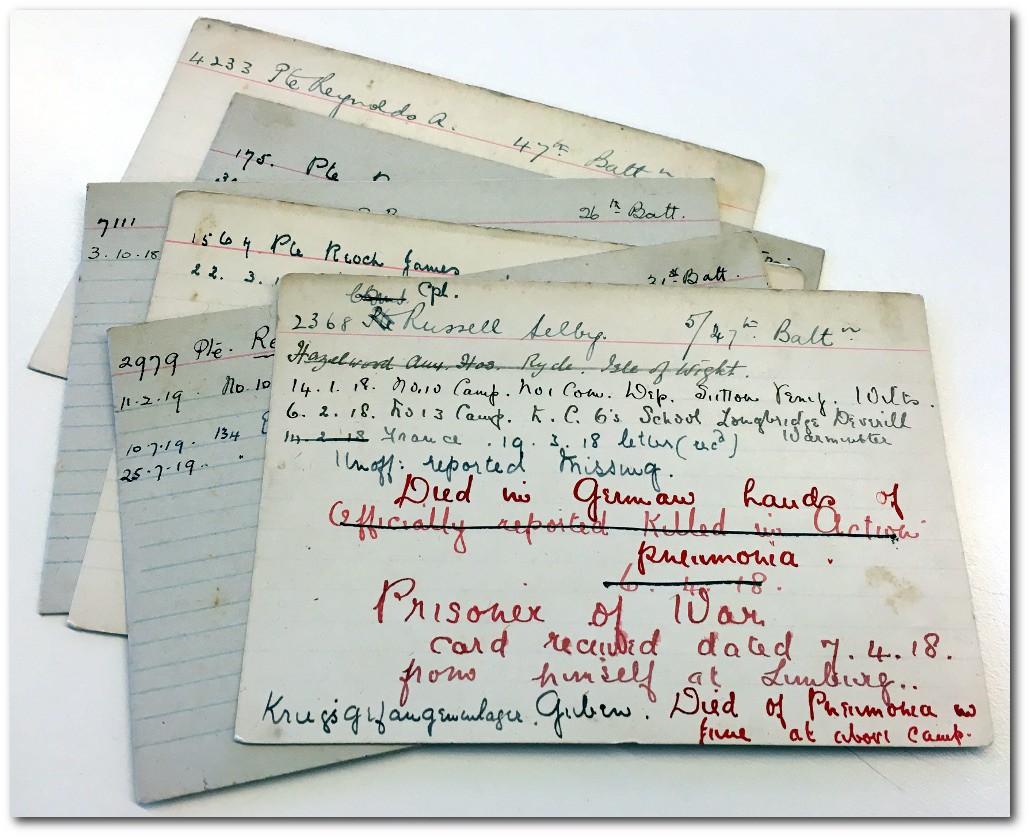 4233 Pte Reynolds A. 47th Battn
175. Pte
26th Batt.
7111
3.10.18
1564 Pte Rioch James
22. 3. 1
21st Batt.
2979 Pte. Re
11.2.19 No. 10
10.7.19. 134
25.7.19..
Cpl.
2368 Pte Russell Selby. 5/47th Battn
Hazelwood Aux. Hos. Ryde. Isle of Wight.
14.1.18. No.10 Camp. No1 Com. Dep. Sutton Veny. Wilts.
6.2.18. No 13 Camp. K.C. 6's School Longbridge Deverill
Warminster
14.2.18 France. 19.3.18 letter
Unoff: reported Missing.
Died in German hands of
Officially reported Killed in Action
pneumonia.
6.4.18.
Prisoner of War
card received dated 7.4.18.
from himself at Limburg..
Kriegsgefangenenlager. Guben. Died of Pneumonia in
June at above camp.